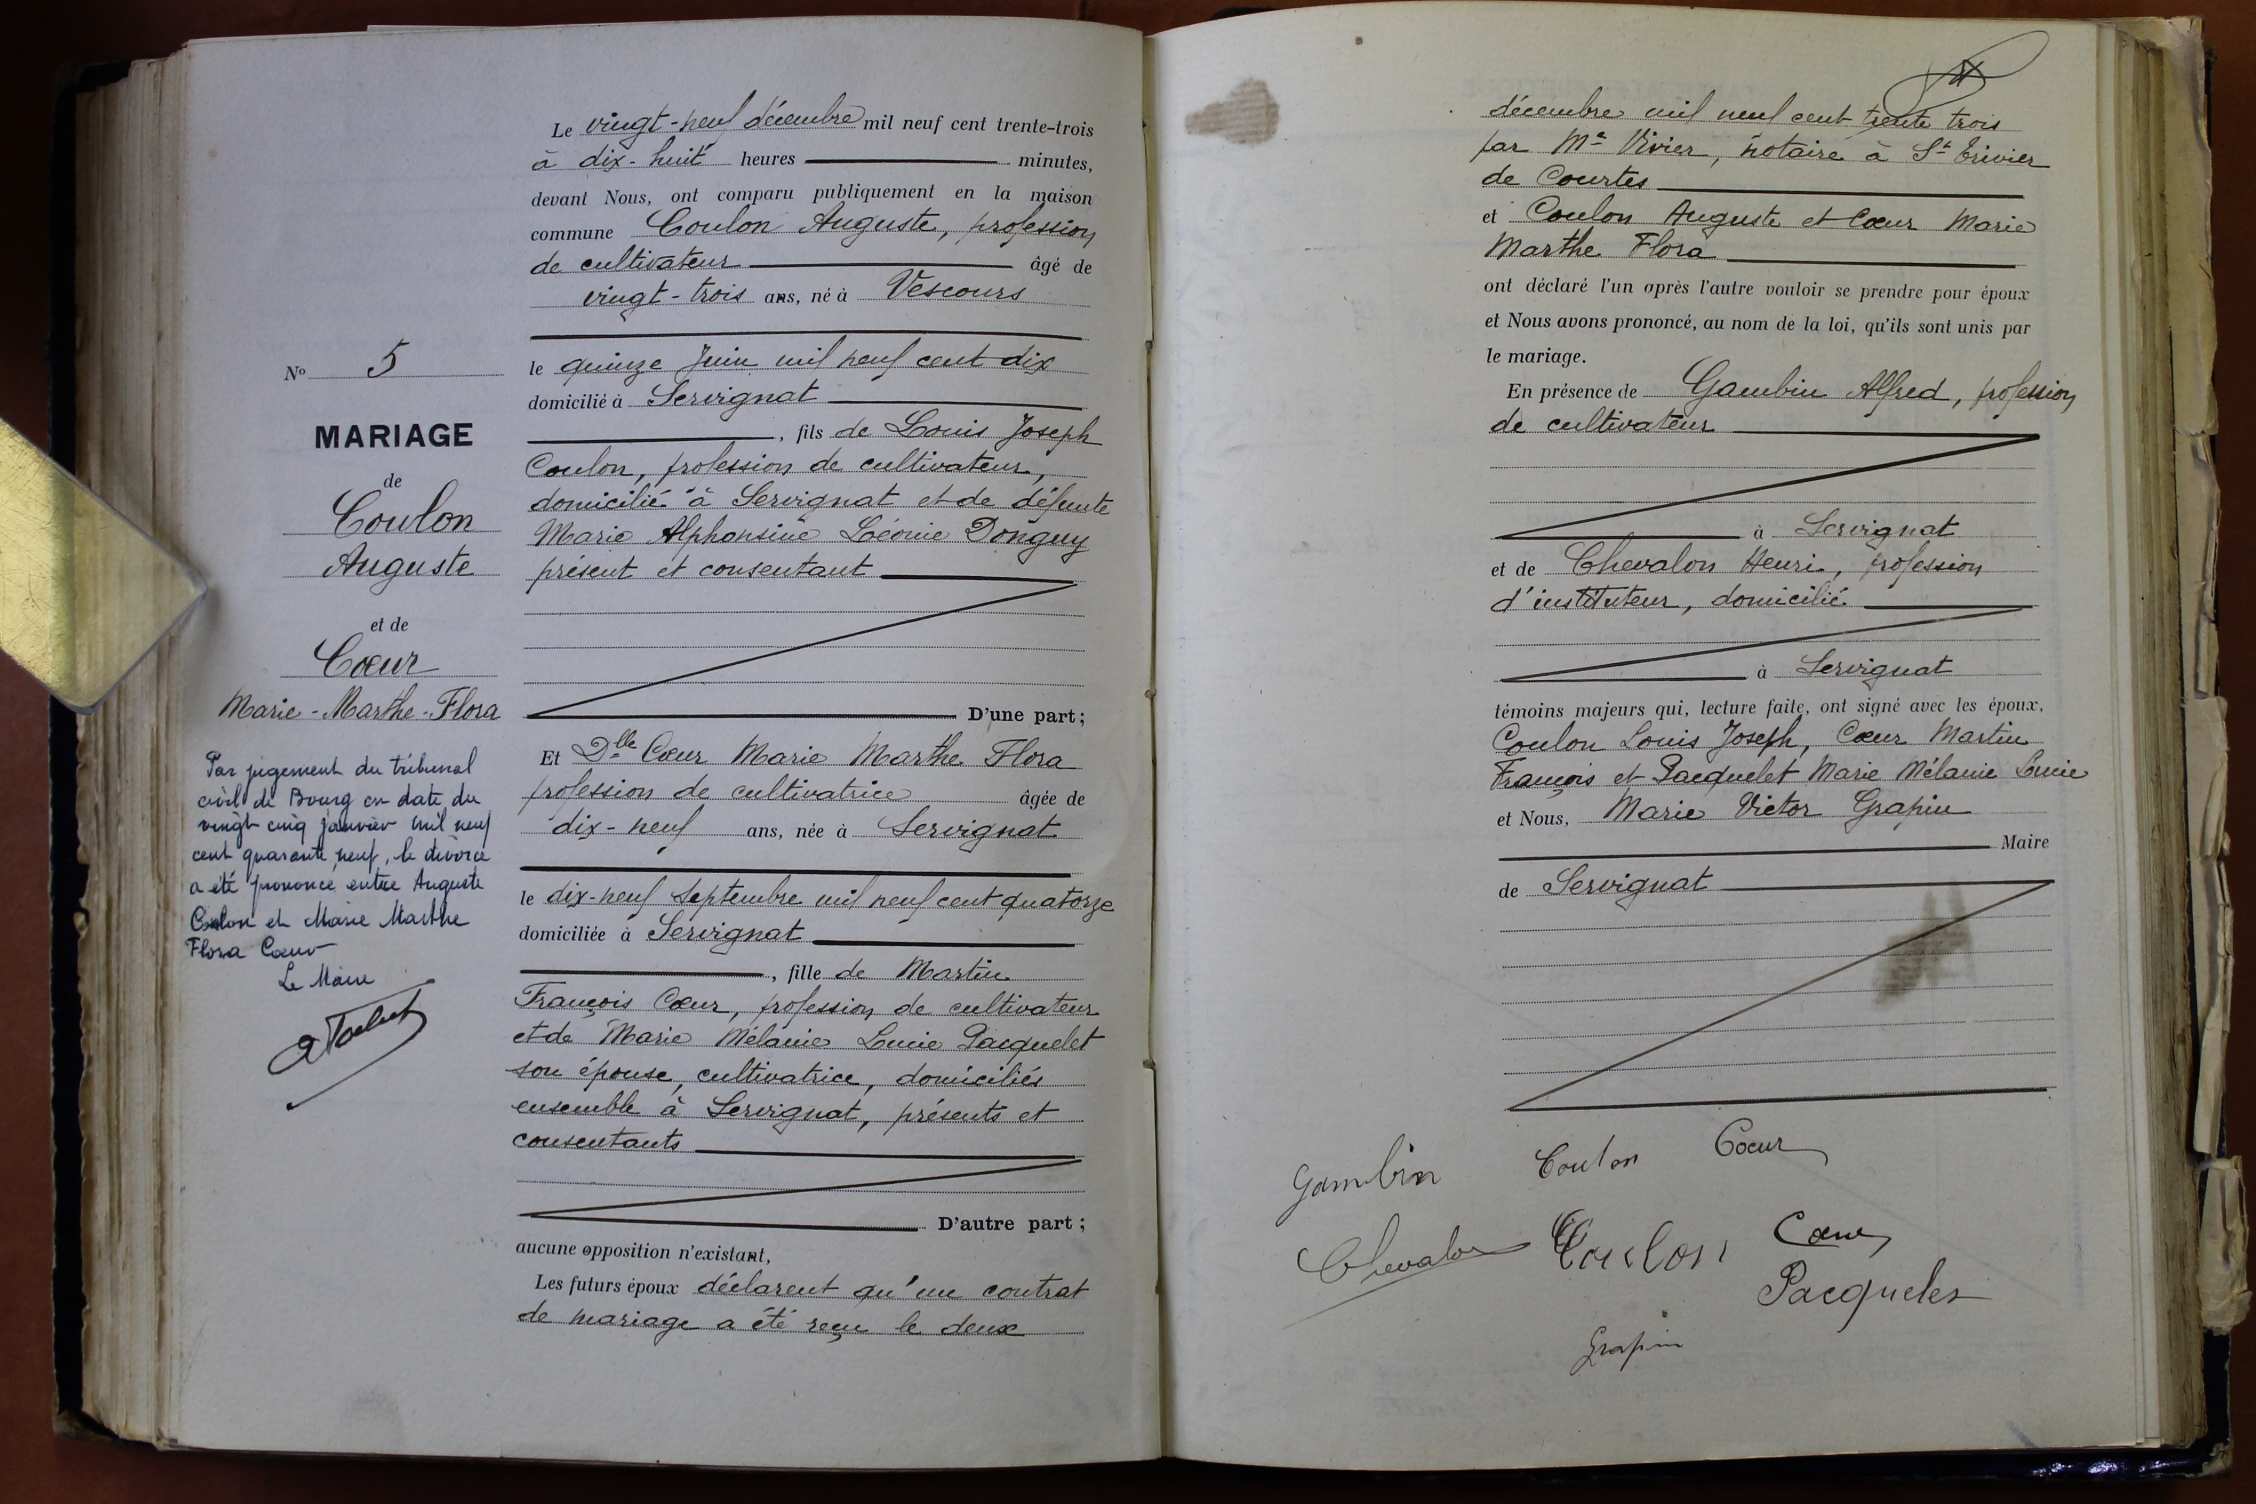 Le vingt-neuf décembre mil neuf cent trente-trois
à dix-huit heures minutes,
devant Nous, ont comparu publiquement en la maison
commune Coulon Auguste, profession
de cultivateur âgé de
vingt-trois ans, né à Vescours
le quinze Juin mil neuf cent dix
domicilié à Servignat
, fils de Louis Joseph
Coulon, profession de cultivateur,
domicilié à Servignat et de défunte
Marie Alphonsine Léonie Donguy
présent et consentant
D'une part;
Et Dlle Cœur Marie Marthe Flora
profession de cultivatrice âgée de
dix-neuf ans, née à Servignat
le dix-neuf septembre mil neuf cent quatorze
domiciliée à Servignat
, fille de Martin
François Cœur, profession de cultivateur
et de Marie Mélanie Lucie Pacquelet
son épouse, cultivatrice, domiciliés
ensemble à Servignat, présents et
consentants
D'autre part;
aucune opposition n'existant,
Les futurs époux déclarent qu'un contrat
de mariage a été reçu le deux
No 5
MARIAGE
de
Coulon
Auguste
et de
Cœur
Marie-Marthe-Flora
Par jugement du tribunal
civil de Bourg en date du
vingt cinq janvier mil neuf
cent quarante neuf, le divorce
a été prononcé entre Auguste
Coulon et Marie Marthe
Flora Cœur
Le Maire
décembre mil neuf cent trente trois
par Me Vivier, notaire à St Trivier
de Courtes
et Coulon Auguste et Cœur Marie
Marthe Flora
ont déclaré l'un après l'autre vouloir se prendre pour époux
et Nous avons prononcé, au nom de la loi, qu'ils sont unis par
le mariage.
En présence de Gambin Alfred, profession
de cultivateur
à Servignat
et de Chevalon Henri, profession
d'instituteur, domicilié
à Servignat
témoins majeurs qui, lecture faite, ont signé avec les époux,
Coulon Louis Joseph, Cœur Martin
François et Pacquelet Marie Mélanie Lucie
et Nous, Marie Victor Grapin
Maire
de Servignat
Gambin Coulon Cœur
Chevalon Coulon Cœur
Pacquelet
Grapin